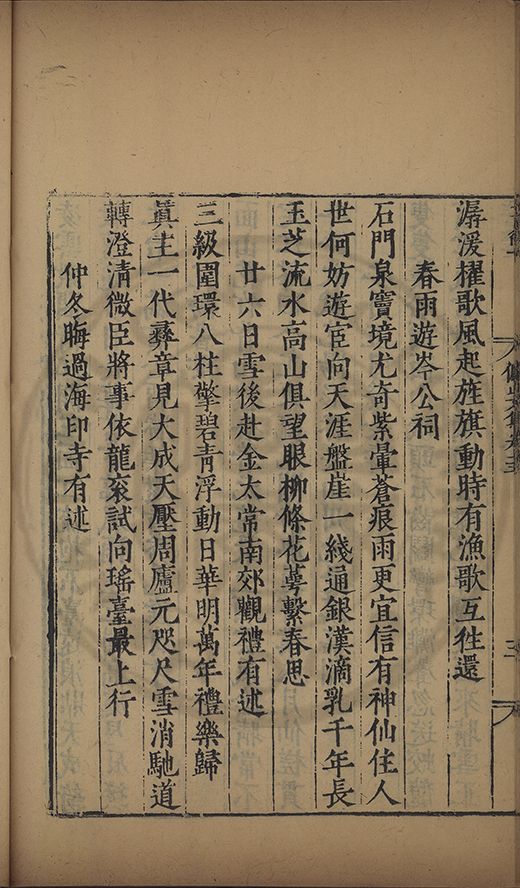 潺湲櫂歌風起旌旗動時有漁歌互徃還
春雨遊岑公祠
石門泉竇境尤奇紫暈蒼痕雨更宜信有神仙住人
世何妨遊宦向天涯盤崖一綫通銀漢滴乳千年長
玉芝流水高山俱望眼柳條花蕚繫春思
廿六日雪後赴金太常南郊觀禮有述
三級圍環八柱擎碧青浮動日華明萬年禮樂歸
眞主一代彝章見大成天壓周廬元咫尺雪消馳道
轉澄清微臣將事依龍衮試向瑤臺最上行
仲冬晦過海印寺有述
三